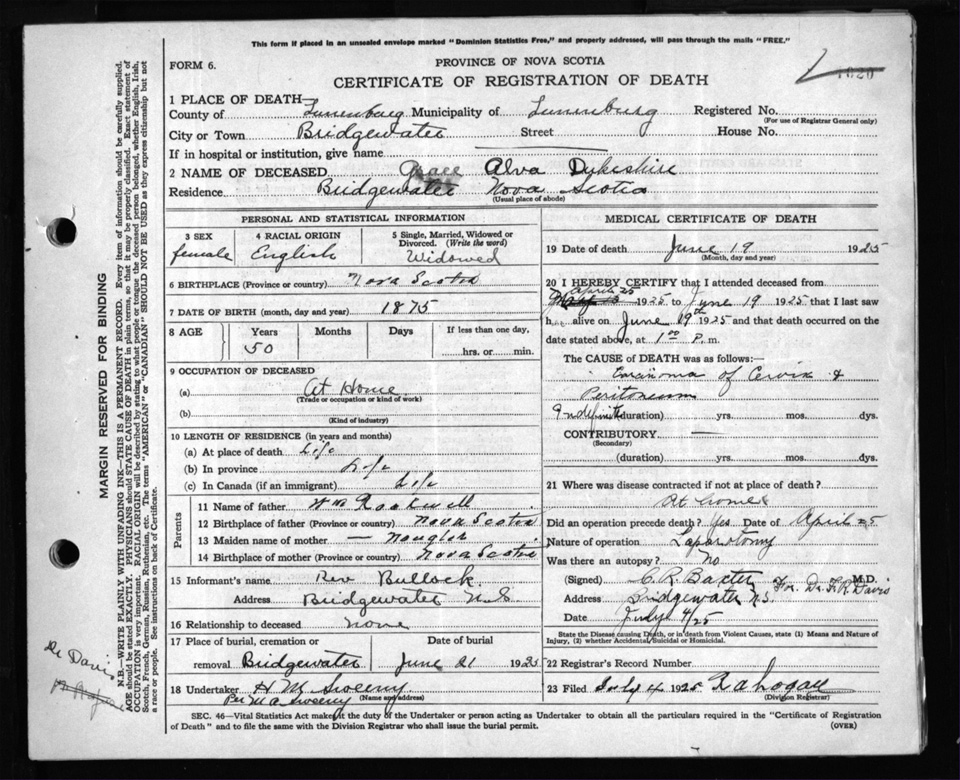 This form if placed in an unsealed envelope marked "Dominion Statistics Free," and properly addressed, will pass through the mails "FREE."
FORM 6.
PROVINCE OF NOVA SCOTIA
CERTIFICATE OF REGISTRATION OF DEATH
1620
1 PLACE OF DEATH—
County of Lunenburg Municipality of Lunenburg Registered No.
(For use of Registrar General only)
City or Town Bridgewater Street House No.
If in hospital or institution, give name
2 NAME OF DECEASED Grace Alva Dykeshire
Residence Bridgewater Nova Scotia
(Usual place of abode)
PERSONAL AND STATISTICAL INFORMATION
3 SEX 4 RACIAL ORIGIN 5 Single, Married, Widowed or Divorced. (Write the word)
female English Widowed
6 BIRTHPLACE (Province or country) Nova Scotia
7 DATE OF BIRTH (month, day and year) 1875
8 AGE Years Months Days If less than one day,
50 hrs. or min.
9 OCCUPATION OF DECEASED
(a) At Home
(Trade or occupation or kind of work)
(b)
(Kind of industry)
10 LENGTH OF RESIDENCE (in years and months)
(a) At place of death Life
(b) In province Life
(c) In Canada (if an immigrant) Life
Parents
11 Name of father Wm Rockwell
12 Birthplace of father (Province or country) Nova Scotia
13 Maiden name of mother —
14 Birthplace of mother (Province or country) Nova Scotia
15 Informant's name Rev Bullock.
Address Bridgewater N.S
16 Relationship to deceased none
17 Place of burial, cremation or Date of burial
removal Bridgewater June 21 1925
18 Undertaker H M Sweeny
Per M A Sweeny (Name and address)
MEDICAL CERTIFICATE OF DEATH
19 Date of death June 19 1925
(Month, day and year)
20 I HEREBY CERTIFY that I attended deceased from
April 25
1925 to June 19 1925 that I last saw
h alive on June 19th 1925 and that death occurred on
date stated above, at 1 00 P. m.
The CAUSE OF DEATH was as follows:—
Carcinoma of Cervix &
Peritoneum
Indefinite (duration) yrs. mos. dys.
CONTRIBUTORY —
(Secondary)
(duration) yrs. mos. dys.
21 Where was disease contracted if not at place of death?
At home
Did an operation precede death? Yes Date of April 25
Nature of operation Laparotomy
Was there an autopsy? No
(Signed) C. R. Baxter M.D.
For Dr. F.R. Davis
Address Bridgewater N.S.
Date July 4/25
State the Disease causing Death, or in death from Violent Causes, state (1) Means and Nature of Injury, (2) whether Accidental, Suicidal or Homicidal.
22 Registrar's Record Number
23 Filed July 4 1925
(Division Registrar)
SEC. 46—Vital Statistics Act makes it the duty of the Undertaker or person acting as Undertaker to obtain all the particulars required in the "Certificate of Registration
of Death" and to file the same with the Division Registrar who shall issue the burial permit.
(OVER)
MARGIN RESERVED FOR BINDING
N.B.—WRITE PLAINLY WITH UNFADING INK—THIS IS A PERMANENT RECORD. Every item of information should be carefully supplied.
AGE should be stated EXACTLY. PHYSICIANS should STATE CAUSE OF DEATH in plain terms, so that it may be properly classified. Exact statement of
OCCUPATION is very important. RACIAL ORIGIN will be described by stating to what people or tongue the deceased person belonged, whether English, Irish,
Scotch, French, German, Russian, Ruthenian, etc. The terms "AMERICAN" or "CANADIAN" SHOULD NOT BE USED as they express citizenship but not
a race or people. See instructions on back of Certificate.
Dr Davis